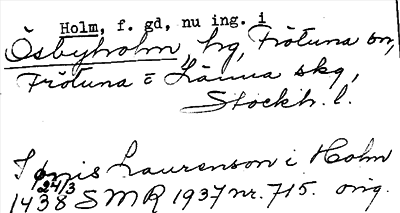 Holm, f. gd, nu ing. i
Ösbyholm, hg, Frötuna sn,
Frötuna o Länna skg,
Stockh. l.
Jønis Laurensson i Holm
24/3
1438 SMR 1937 nr. 715. orig.